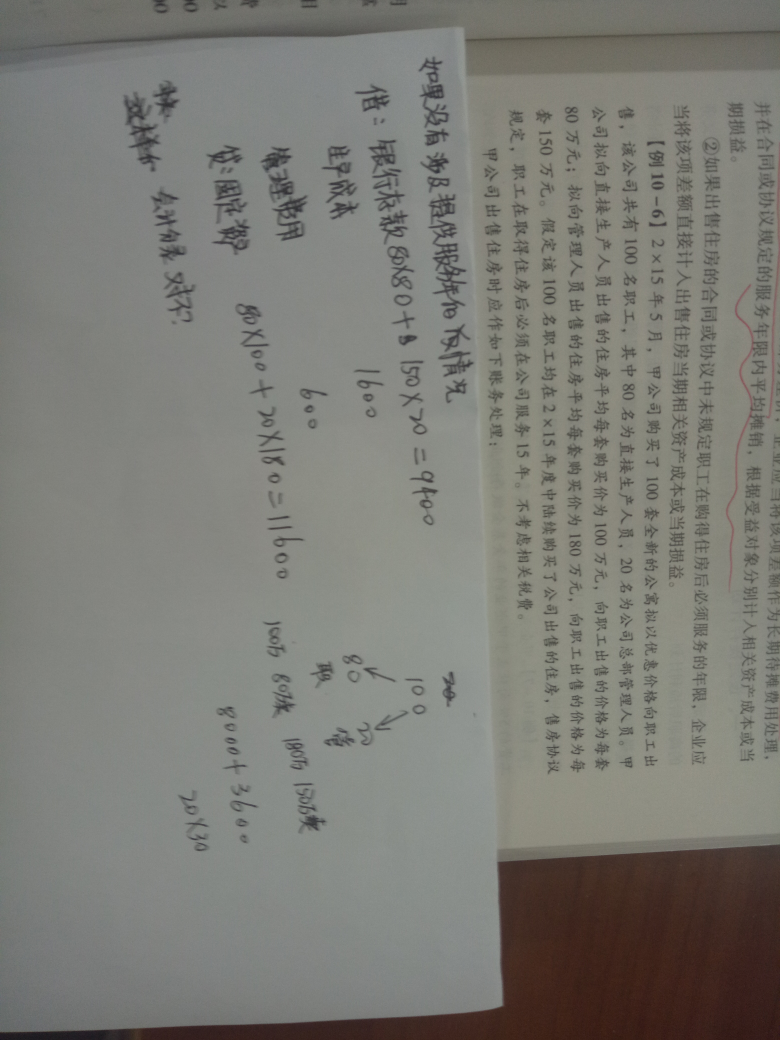 并在合同或协议规定的服务年限内平均摊销，根据受益对象分别计入相关资产成本或当
期损益。
②如果出售住房的合同或协议中未规定职工在购得住房后必须服务的年限，企业应
当将该项差额直接计入出售住房当期相关资产成本或当期损益。
【例10－6】2×15年5月，甲公司购买了100套全新的公寓拟以优惠价格向职工出
售，该公司共有100名职工，其中80名为直接生产人员，20名为公司总部管理人员。甲
公司拟向直接生产人员出售的住房平均每套购买价为100万元，向职工出售的价格为每套
80万元；拟向管理人员出售的住房平均每套购买价为180万元，向职工出售的价格为每
套150万元。假定该100名职工均在2×15年度中陆续购买了公司出售的住房，售房协议
规定，职工在取得住房后必须在公司服务15年。不考虑相关税费。
甲公司出售住房时应作如下账务处理：
如果没有涉及提供服务年的情况
借：银行存款80×80＋150×20＝9400
生产成本 1600
管理费用 600
贷：固定资产 80×100＋20×180＝11600
这样的 会计分录 对不？
100
80 20
职 管
100万 80万卖 180万 150万卖
8000＋3600
20×30